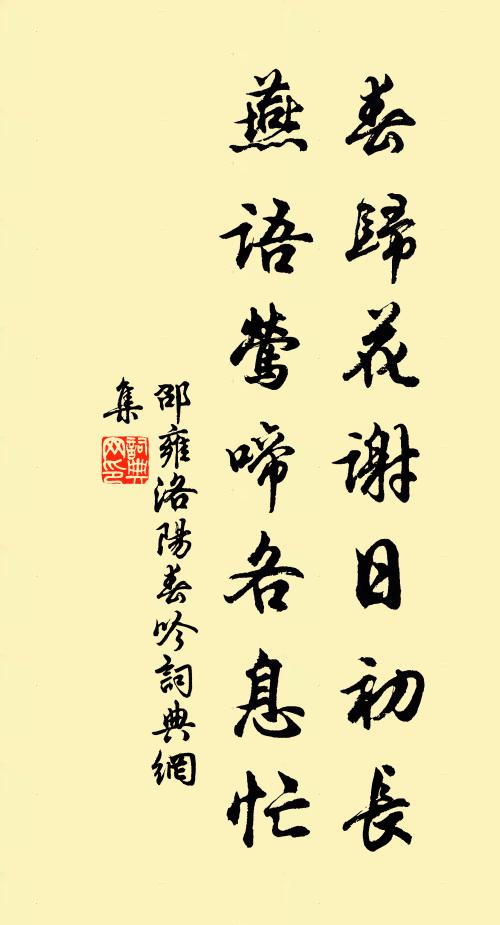 春歸花謝日初長
燕語鶯啼各息忙
邵雍洛陽春吟詞典網
集
詞典網印